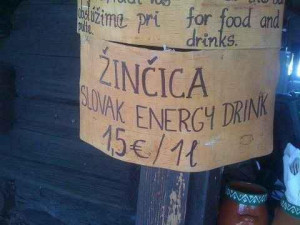 obslúžime pri for food and
pulte. drinks.
ŽINČICA
SLOVAK ENERGY DRINK
1,5 € / 1 l